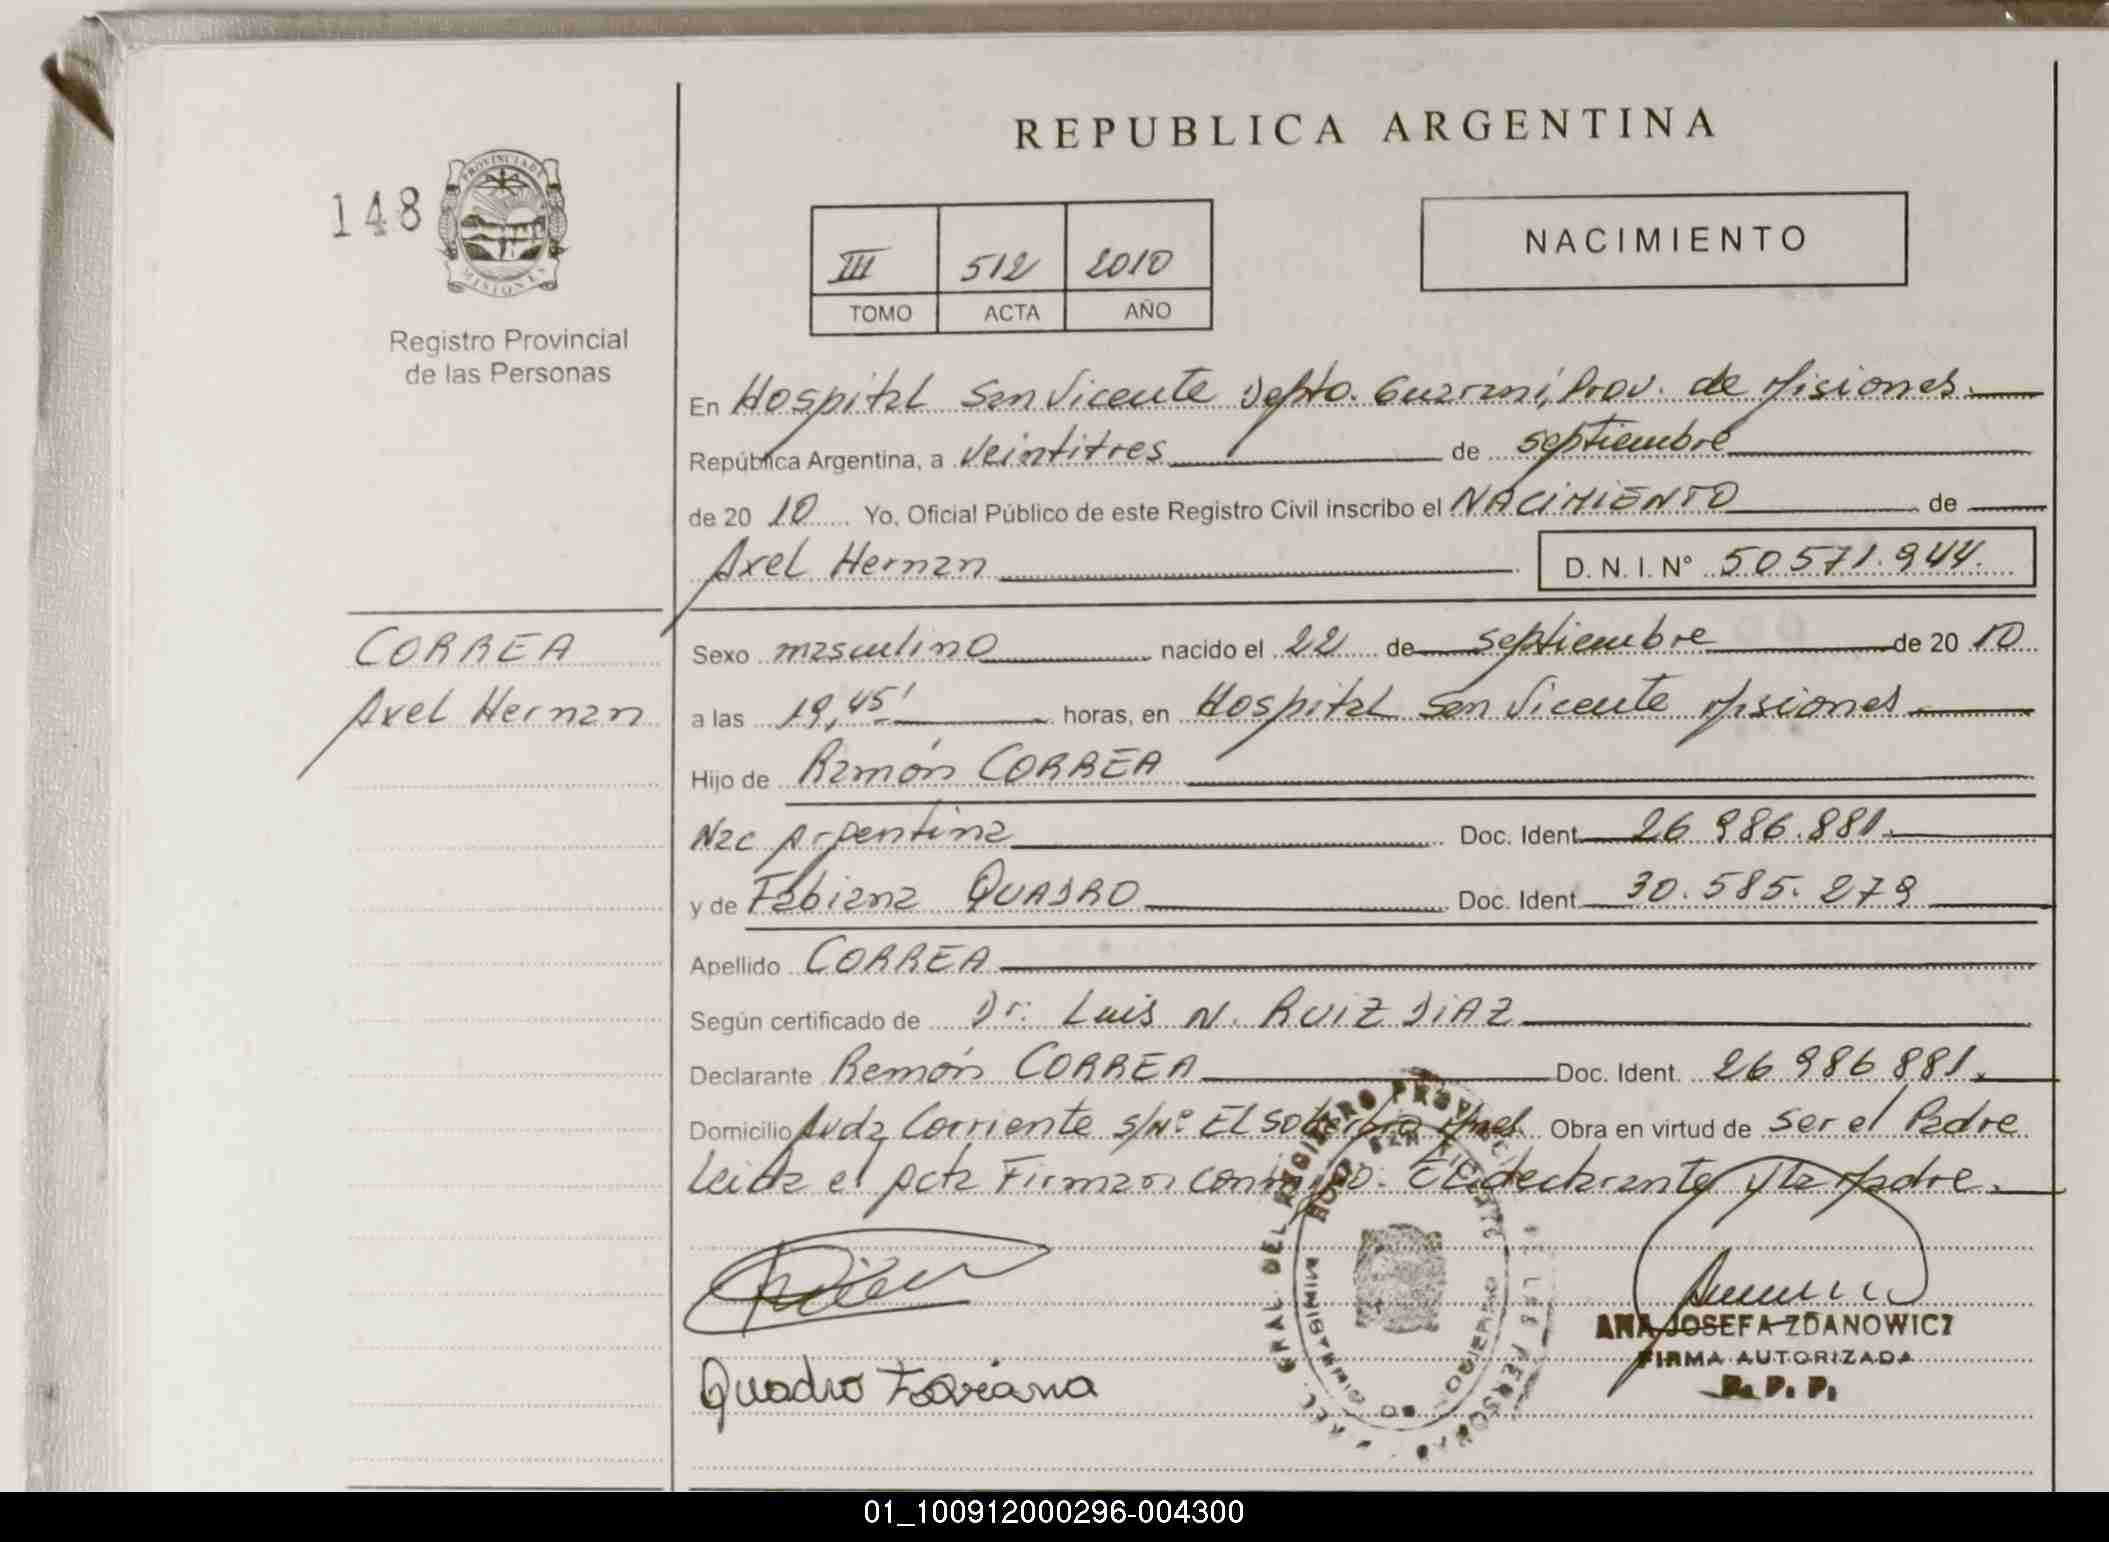 REPUBLICA ARGENTINA
148
PROVINCIA DE
MISIONES
Registro Provincial
de las Personas
III 512 2010
TOMO ACTA AÑO
NACIMIENTO
En Hospital San Vicente Depto. Guarani, Prov. de Misiones.
República Argentina, a veintitres de septiembre
de 20 10 Yo, Oficial Público de este Registro Civil inscribo el NACIMIENTO de
Axel Hernan D. N. I. N° 50571.944.
CORREA
Axel Hernan
Sexo masculino nacido el 22 de septiembre de 20 10
a las 19,45' horas, en Hospital San Vicente Misiones
Hijo de Ramón CORREA
Nac Argentina Doc. Ident. 26 986.881.
y de Fabiana QUADRO Doc. Ident. 30.585.279
Apellido CORREA
Según certificado de Dr: Luis N. RUIZ DIAZ
Declarante Ramón CORREA Doc. Ident. 26 986 881.
Domicilio Avda Corriente s/n° El Soberbio Mnes. Obra en virtud de ser el Padre
Leida el Acta Firman El declarante y la Madre.
Quadro Faviana
ANA JOSEFA ZDANOWICZ
FIRMA AUTORIZADA
R. P. P.
01_100912000296-004300